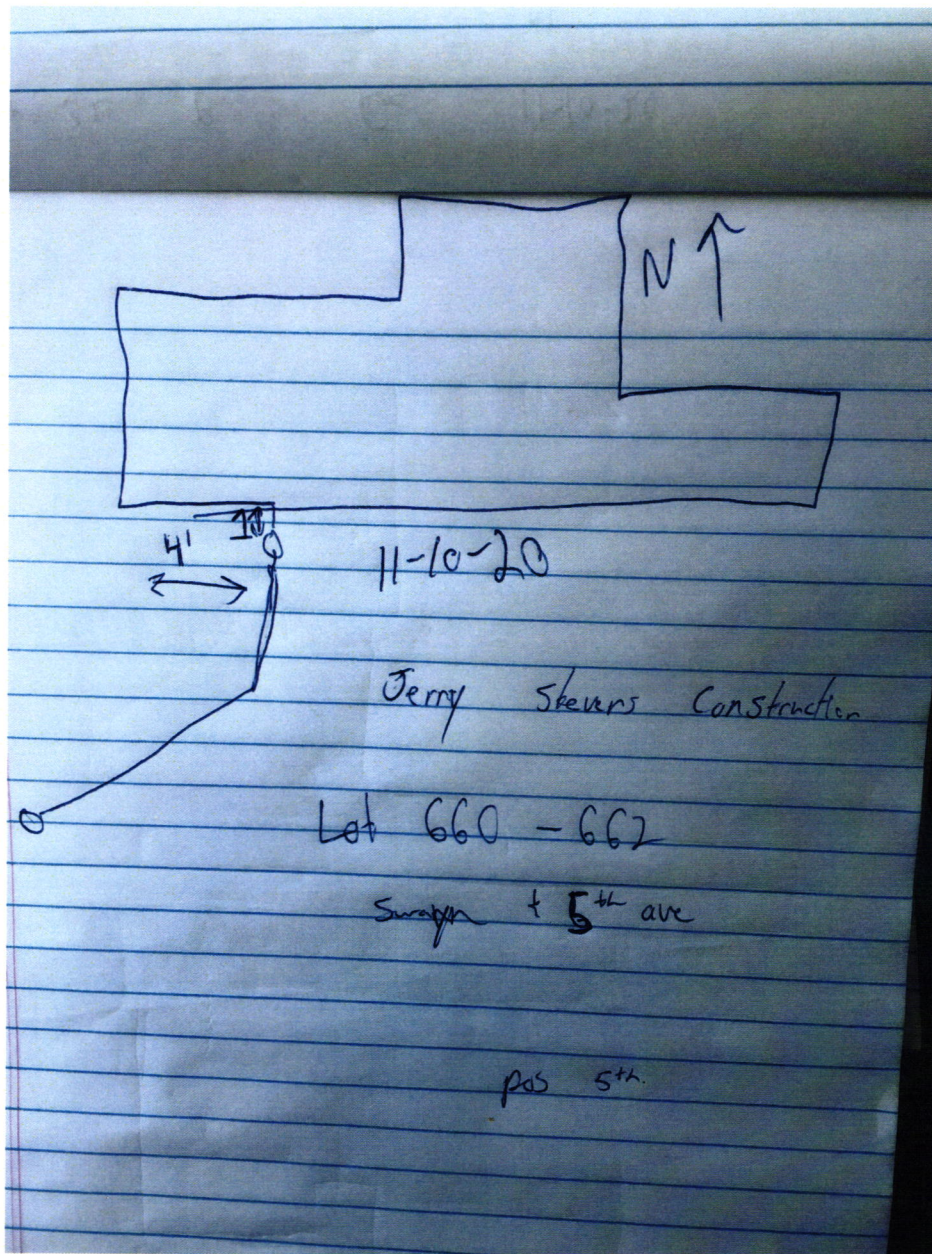 N
4'
11-10-20
Jerry Stevers Construction
Lot 660 - 662
+ 5th ave
pas 5th.